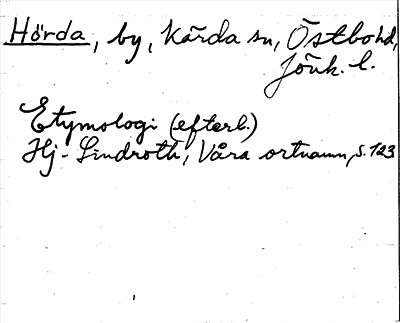 Hörda, by, Kärda sn, Östbohd,
Jönk. l.
Etymologi (efterl.)
Hj. Lindroth, Våra ortnamn, s. 123